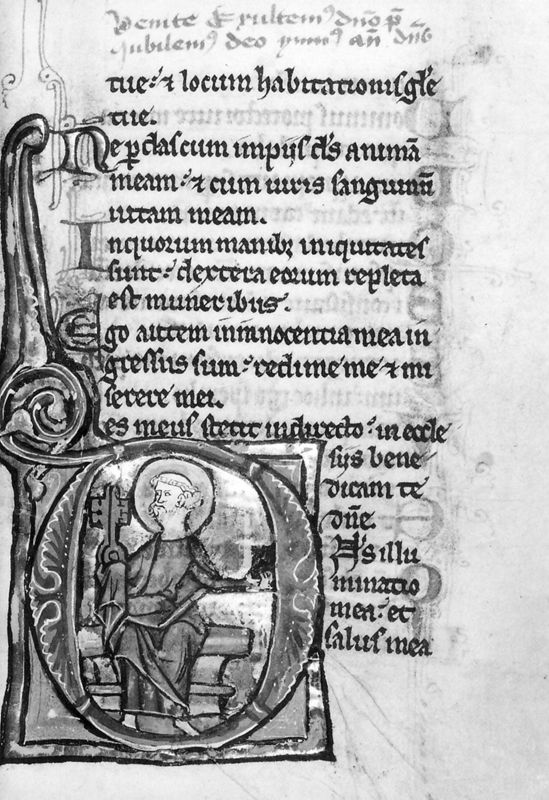 Venite Exultem⁹ dn̄o p̄
Jubilem⁹ deo
tue. ⁊ locum habitationis gl̄e
tue.
Ne ꝑdas cum impijs d̄s animā
meam. ⁊ cum uiris sanguinū
uitam meam.
In quorum manibꝫ iniquitates
sunt. dextera eorum repleta
est muneribus.
Ego autem in innocentia mea in
gressus sum. redime me ⁊ mi
serere mei.
es meus stetit in directo. in eccle
sijs bene
dicam te
dn̄e.
D̄s illu
minatio
mea. et
salus mea